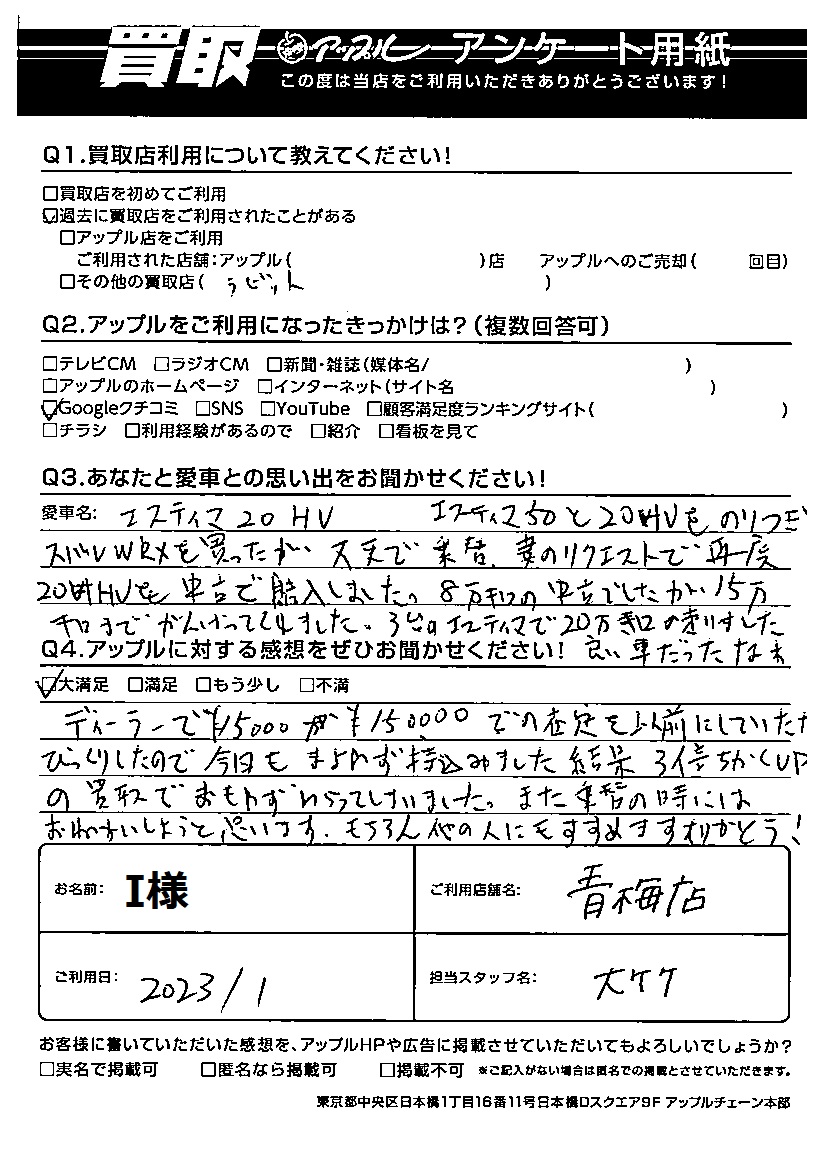 買取 アップル アンケート用紙
この度は当店をご利用いただきありがとうございます!
Q1.買取店利用について教えてください!
□買取店を初めてご利用
☑過去に買取店をご利用されたことがある
□アップル店をご利用
ご利用された店舗:アップル( )店 アップルへのご売却( 回目)
□その他の買取店( ラビット )
Q2.アップルをご利用になったきっかけは?(複数回答可)
□テレビCM □ラジオCM □新聞・雑誌(媒体名/ )
□アップルのホームページ □インターネット(サイト名 )
☑Googleクチコミ □SNS □YouTube □顧客満足度ランキングサイト( )
□チラシ □利用経験があるので □紹介 □看板を見て
Q3.あなたと愛車との思い出をお聞かせください!
愛車名: エスティマ20HV エスティマ50と20HVをのりつぎ
スバルWRXを買ったが 丈夫で 乗替、妻のリクエストで再度
20HVを中古で購入しました。8万キロの中古でしたが15万
キロまでがんばってくれました。3台のエスティマで20万キロの走りました
Q4.アップルに対する感想をぜひお聞かせください! 良い車だったなぁ
☑大満足 □満足 □もう少し □不満
ディーラーで¥15000が¥150000での査定を以前にしていただ
びっくりしたので今回もまよわず持込みました 結果 3倍ちかくUP
の買取でおもわずわらってしまいました。また乗替の時には
おねがいしようと思います。もちろん他の人にもすすめますありがとう!
お名前: I様 ご利用店舗名: 青梅店
ご利用日: 2023/1 担当スタッフ名: 大ケケ
お客様に書いていただいた感想を、アップルHPや広告に掲載させていただいてもよろしいでしょうか?
□実名で掲載可 □匿名なら掲載可 □掲載不可 ※ご記入がない場合は匿名での掲載とさせていただきます。
東京都中央区日本橋1丁目16番11号日本橋Dスクエア9F アップルチェーン本部